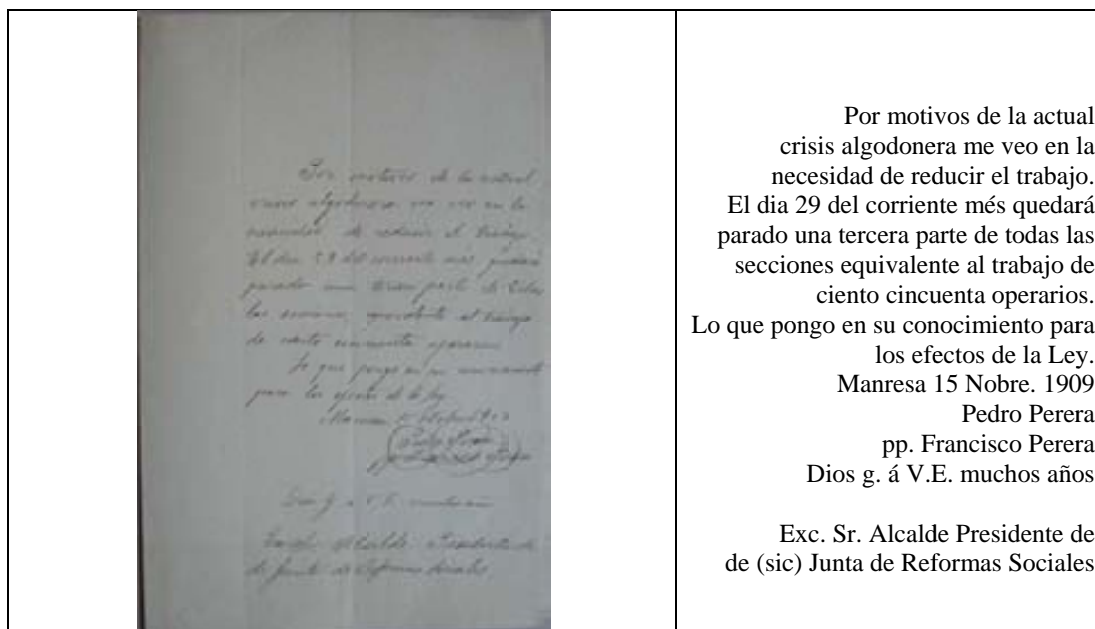 Por motivos de la actual
crisis algodonera me veo en la
necesidad de reducir el trabajo
El dia 29 del corriente més quedará
parado una tercera parte de todas
las secciones equivalente al trabajo
de ciento cincuenta operarios
Lo que pongo en su conocimiento
para los efectos de la Ley
Manresa 15 Nobre 1909
Pedro Perera
Dios g. á V.E. muchos años
Alcalde Presidente de
de Junta de Reformas Sociales
Por motivos de la actual
crisis algodonera me veo en la
necesidad de reducir el trabajo.
El dia 29 del corriente més quedará
parado una tercera parte de todas las
secciones equivalente al trabajo de
ciento cincuenta operarios.
Lo que pongo en su conocimiento para
los efectos de la Ley.
Manresa 15 Nobre. 1909
Pedro Perera
pp. Francisco Perera
Dios g. á V.E. muchos años
Exc. Sr. Alcalde Presidente de
de (sic) Junta de Reformas Sociales